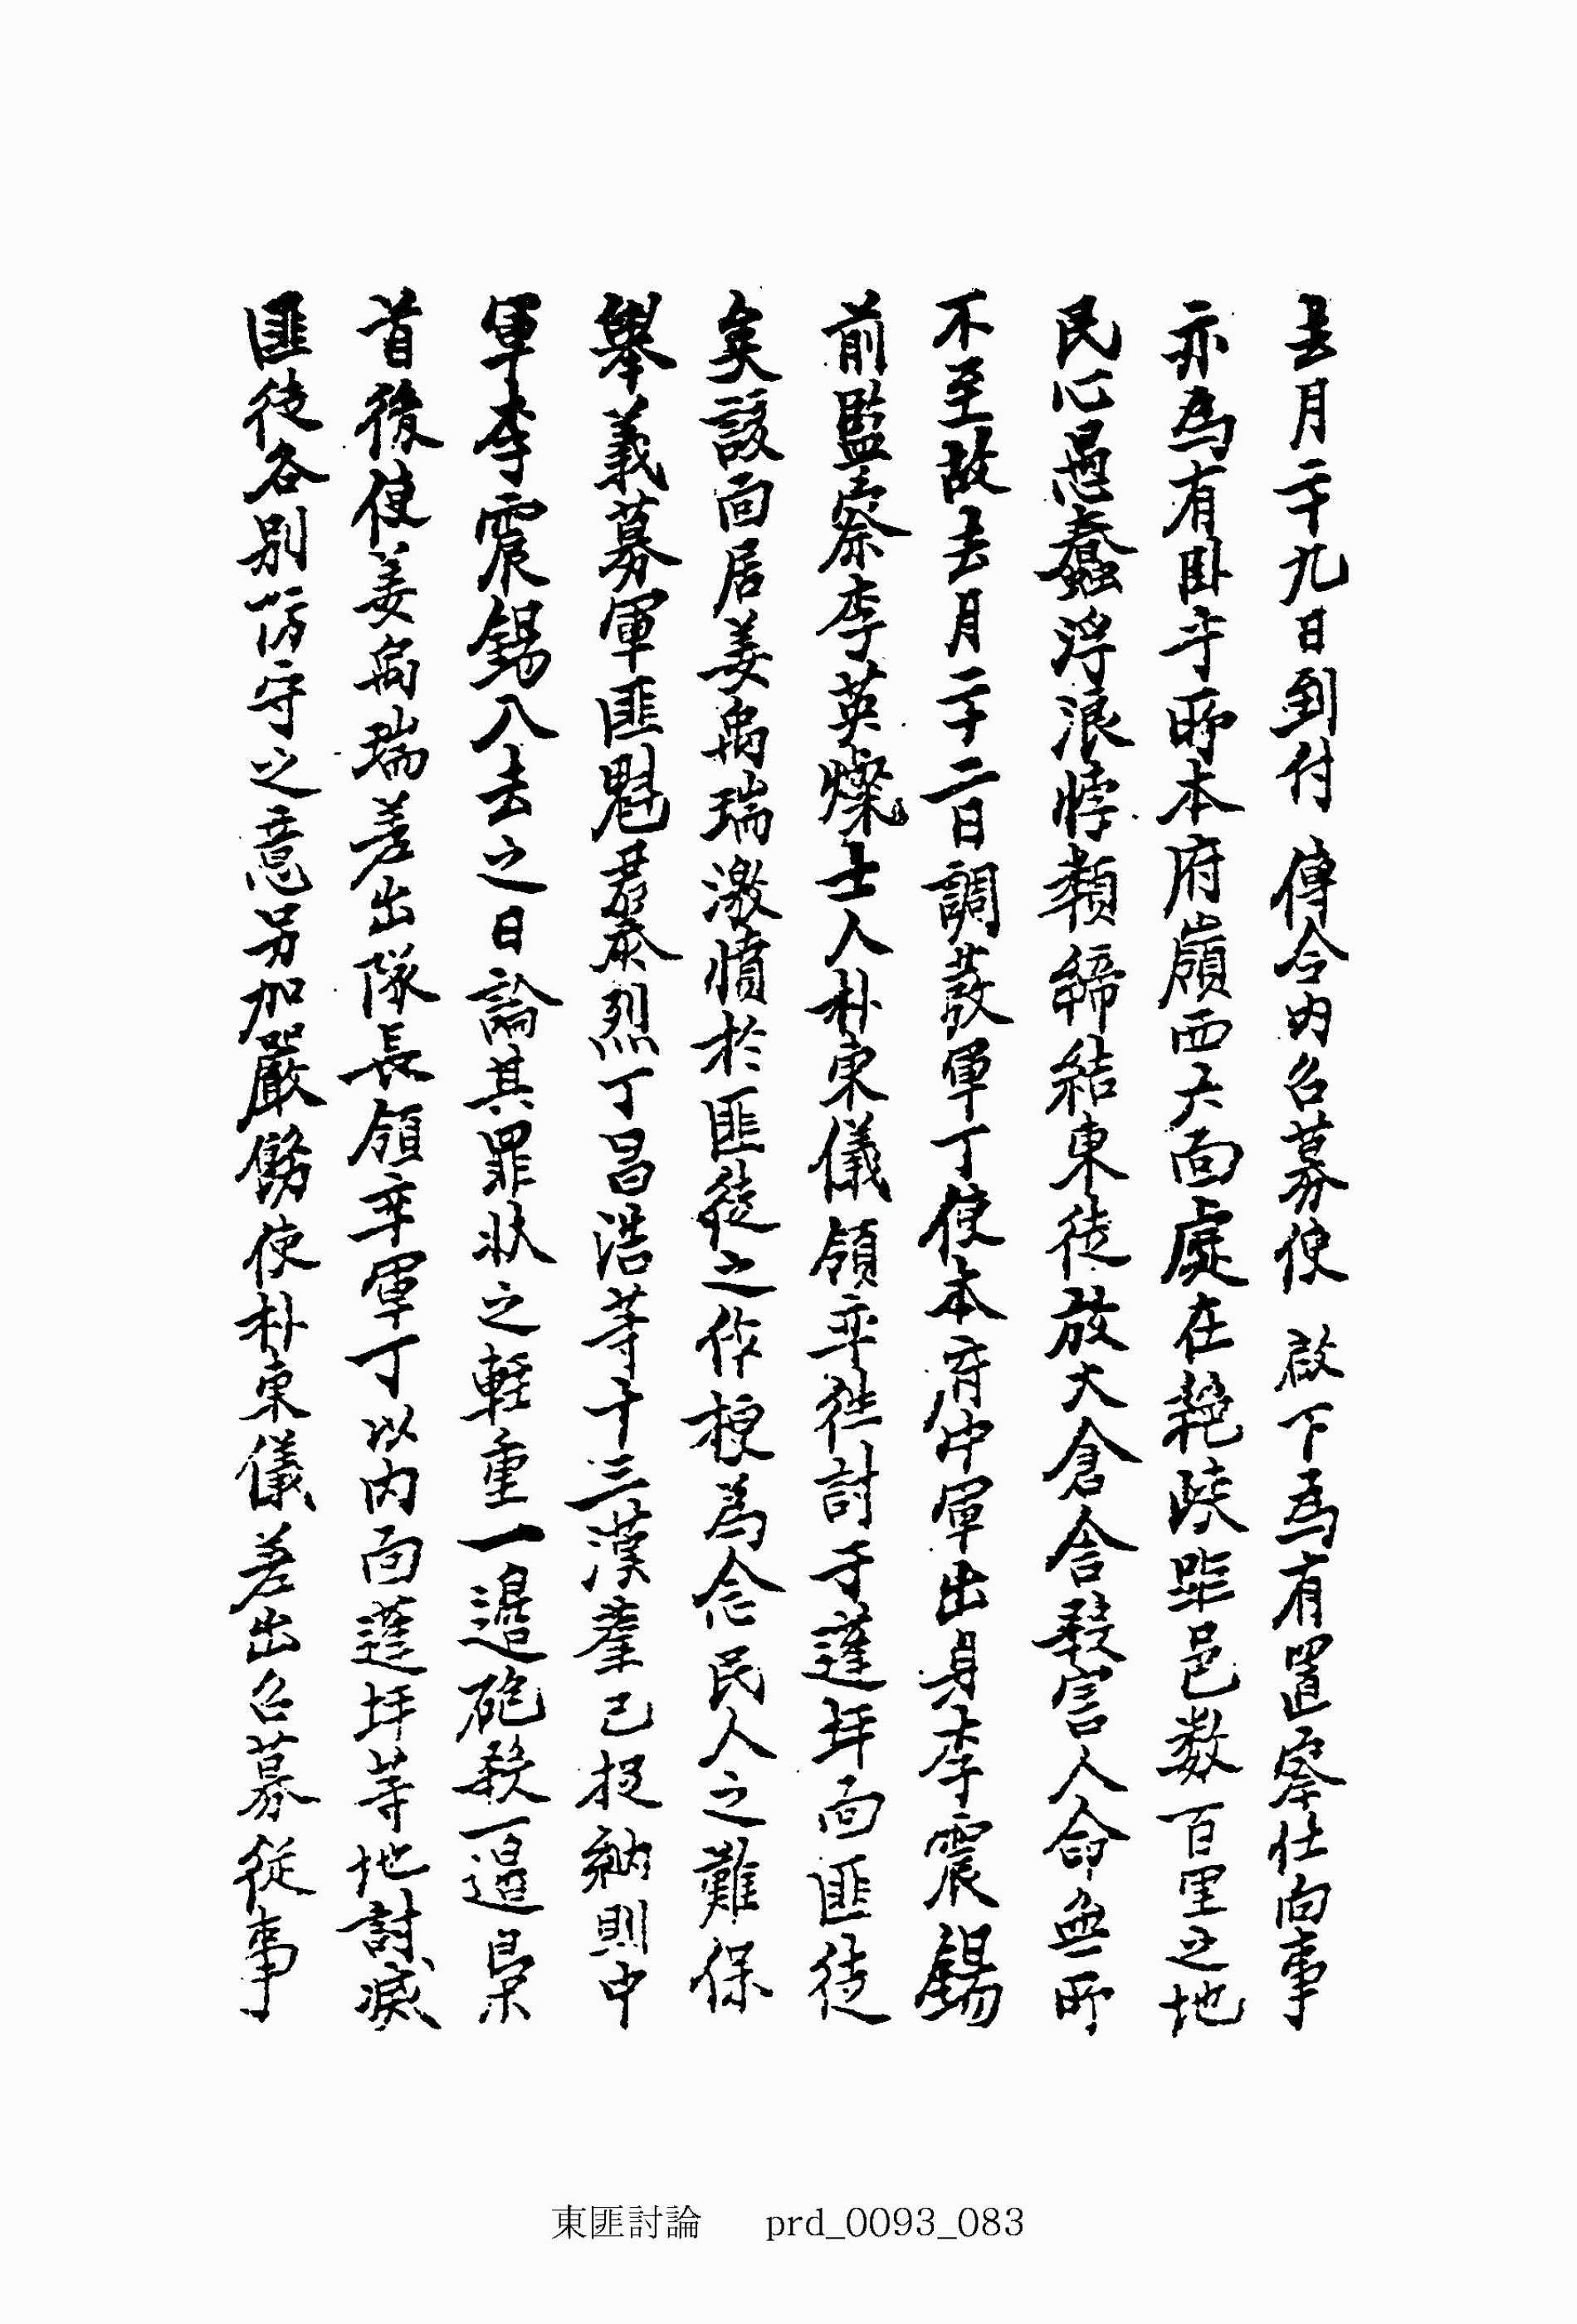 去月二十九日到付 傳令內召募使 啟下爲有置察仕向事
亦爲有臥乎所本府嶺西大面處在絶峽距邑数百里之地
民心愚蠢浮浪悖類締結東徒放火倉舍殺害人命無所
不至故去月二十二日調發軍丁使本府中軍出身李震錫
前監察李英燦士人朴東儀領率徃討于蓬坪面匪徒
矣該面居姜禹瑞激憤於匪徒之作梗爲念民人之難保
舉義募軍匪魁尹泰烈丁昌浩等十三漢羣已捉納則中
軍李震錫入去之日論其罪狀之輕重一邊砲殺一邊梟
首後使姜禹瑞差出隊長領率軍丁以內面蓬坪等地討滅
匪徒各別防守之意另加嚴飭使朴東儀差出召募從事
東匪討論 prd_0093_083